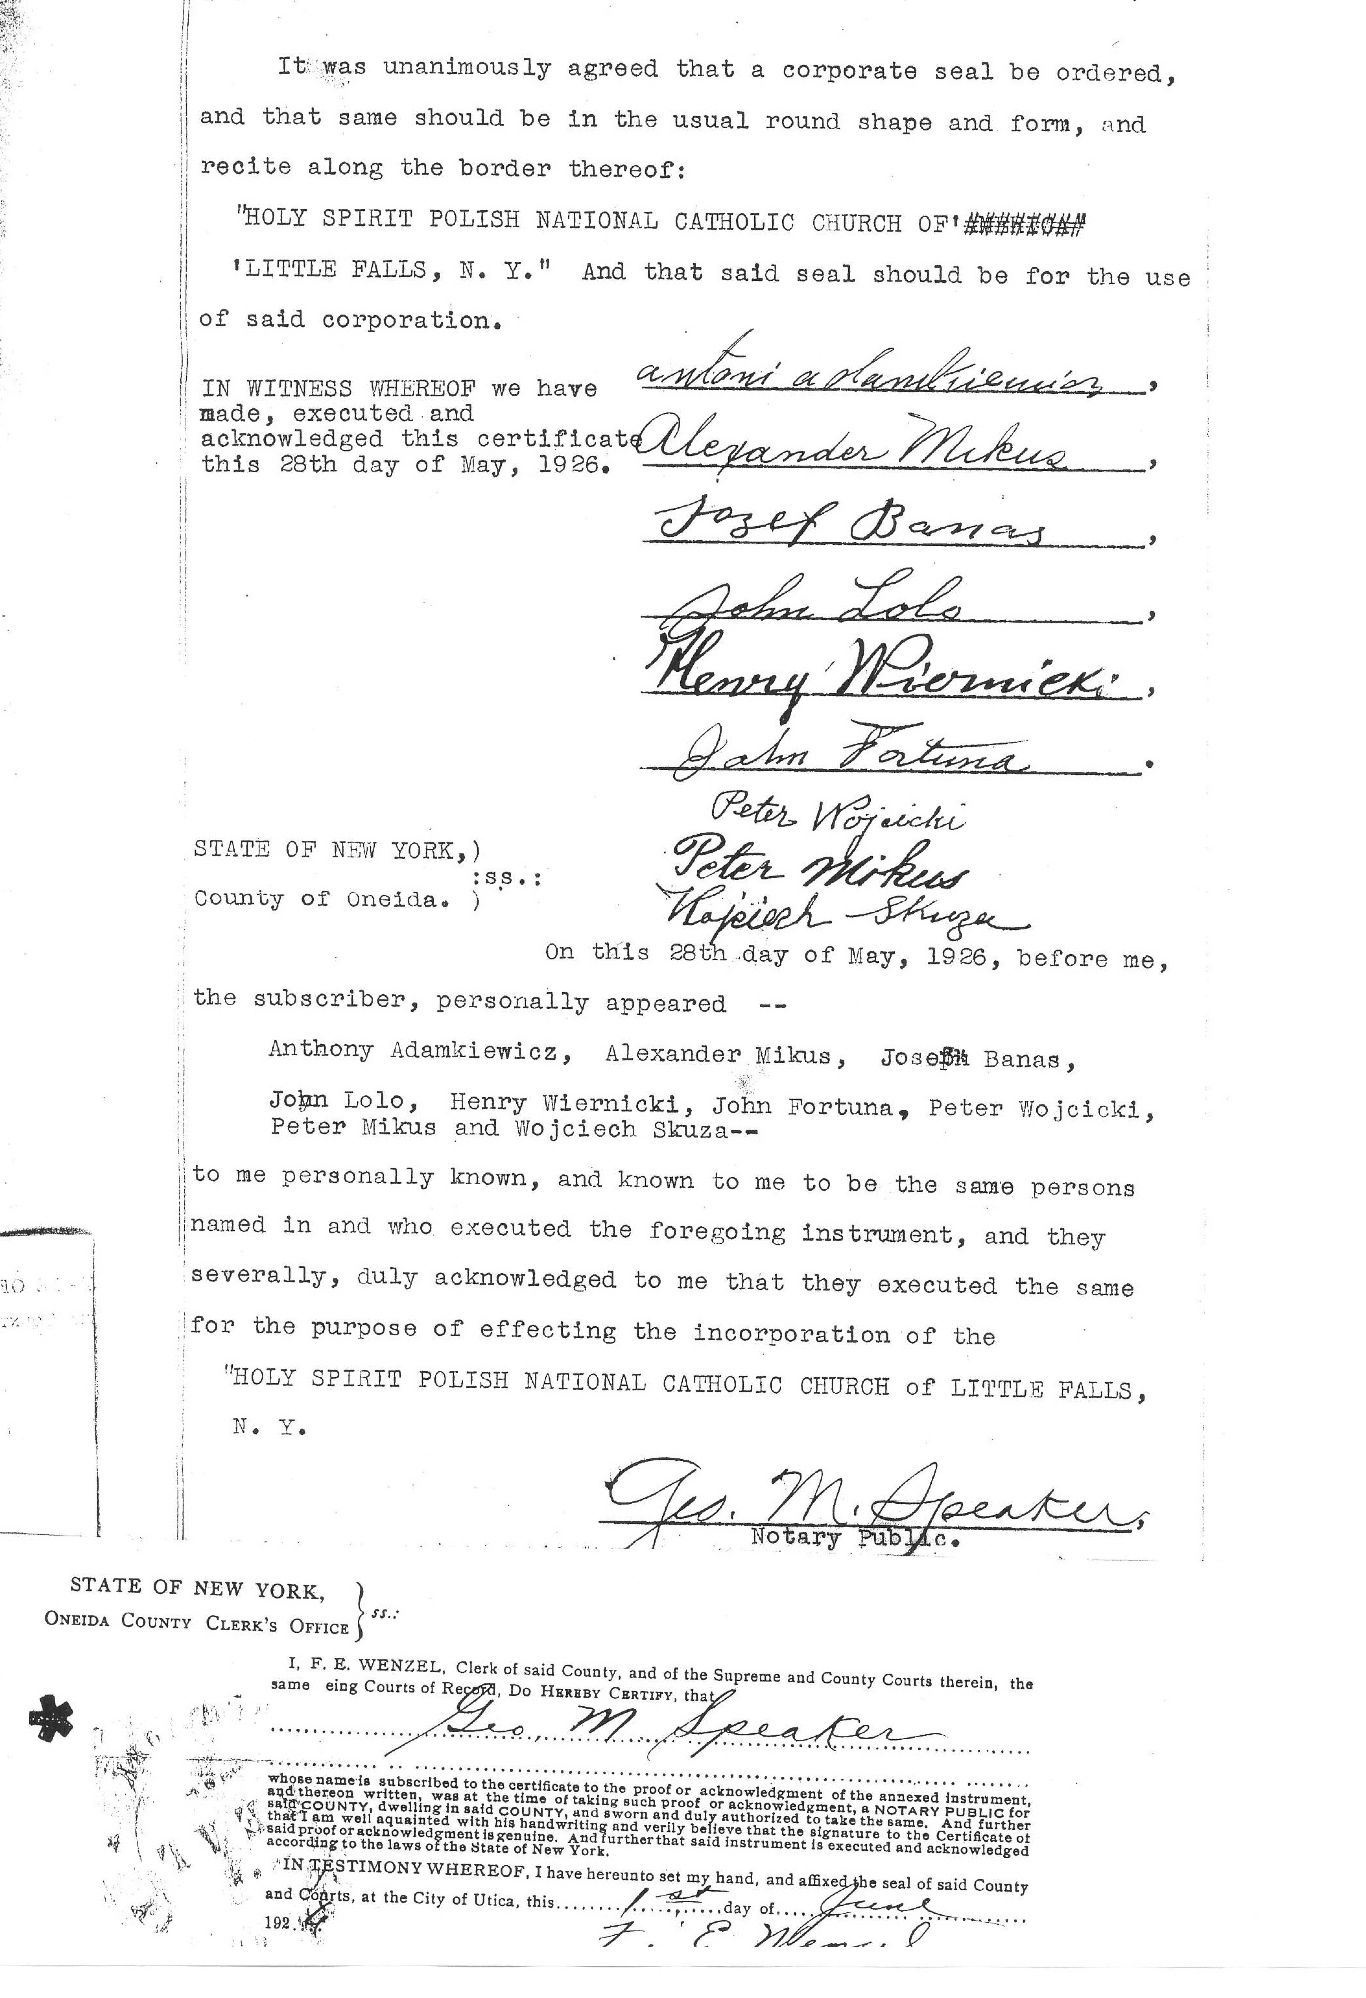 It was unanimously agreed that a corporate seal be ordered,
and that same should be in the usual round shape and form, and
recite along the border thereof:
"HOLY SPIRIT POLISH NATIONAL CATHOLIC CHURCH OF'
'LITTLE FALLS, N. Y." And that said seal should be for the use
of said corporation.
antoni adamkiewicz,
IN WITNESS WHEREOF we have
made, executed and
acknowledged this certificate
this 28th day of May, 1926.
Alexander Mikus,
Jozef Banas,
John Lolo,
Henry Wiernicki,
John Fortuna.
Peter Wojcicki
Peter Mikus
Wojciech Skuza
STATE OF NEW YORK,)
:ss.:
County of Oneida. )
On this 28th day of May, 1926, before me,
the subscriber, personally appeared --
Anthony Adamkiewicz, Alexander Mikus, Joseph Banas,
John Lolo, Henry Wiernicki, John Fortuna, Peter Wojcicki,
Peter Mikus and Wojciech Skuza--
to me personally known, and known to me to be the same persons
named in and who executed the foregoing instrument, and they
severally, duly acknowledged to me that they executed the same
for the purpose of effecting the incorporation of the
"HOLY SPIRIT POLISH NATIONAL CATHOLIC CHURCH of LITTLE FALLS,
N. Y.
Geo. M. Speaker,
Notary Public.
STATE OF NEW YORK,
ONEIDA COUNTY CLERK'S OFFICE } ss.:
I, F. E. WENZEL, Clerk of said County, and of the Supreme and County Courts therein, the
same eing Courts of Record, DO HEREBY CERTIFY, that
Geo. M. Speaker
whose name is subscribed to the certificate to the proof or acknowledgment of the annexed instrument,
and thereon written, was at the time of taking such proof or acknowledgment, a NOTARY PUBLIC for
said COUNTY, dwelling in said COUNTY, and sworn and duly authorized to take the same. And further
that I am well aquainted with his handwriting and verily believe that the signature to the Certificate of
said proof or acknowledgment is genuine. And further that said instrument is executed and acknowledged
according to the laws of the State of New York.
IN TESTIMONY WHEREOF, I have hereunto set my hand, and affixed the seal of said County
and Courts, at the City of Utica, this 1st day of June
192
F. E. Wenzel